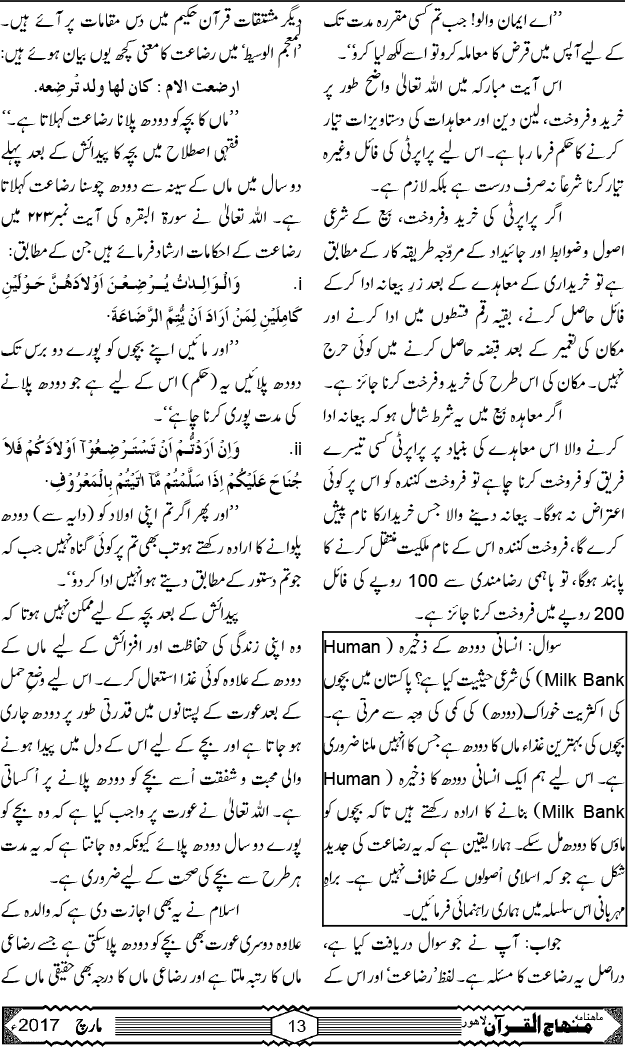 ’’اے ایمان والو! جب تم کسی مقررہ مدت تک
کے لیے آپس میں قرض کا معاملہ کرو تو اسے لکھ لیا کرو‘‘۔
اس آیت مبارکہ میں اللہ تعالیٰ واضح طور پر
خرید و فروخت، لین دین اور معاہدات کی دستاویزات تیار
کرنے کا حکم فرما رہا ہے۔ اس لیے پراپرٹی کی فائل وغیرہ
تیار کرنا شرعاً نہ صرف درست ہے بلکہ لازم ہے۔
اگر پراپرٹی کی خرید و فروخت، بیع کے شرعی
اصول و ضوابط اور جائیداد کے مروّجہ طریقہ کار کے مطابق
ہے تو خریداری کے معاہدے کے بعد زرِ بیعانہ ادا کرکے
فائل حاصل کرنے، بقیہ رقم قسطوں میں ادا کرنے اور
مکان کی تعمیر کے بعد قبضہ حاصل کرنے میں کوئی حرج
نہیں۔ مکان کی اس طرح کی خرید و فروخت کرنا جائز ہے۔
اگر معاہدہ بیع میں یہ شرط شامل ہو کہ بیعانہ ادا
کرنے والا اس معاہدے کی بنیاد پر پراپرٹی کسی تیسرے
فریق کو فروخت کرنا چاہے تو فروخت کنندہ کو اس پر کوئی
اعتراض نہ ہوگا۔ بیعانہ دینے والا جس خریدار کا نام پیش
کرے گا، فروخت کنندہ اس کے نام ملکیت منتقل کرنے کا
پابند ہوگا، تو باہمی رضامندی سے 100 روپے کی فائل
200 روپے میں فروخت کرنا جائز ہے۔
سوال: انسانی دودھ کے ذخیرہ (Human
Milk Bank) کی شرعی حیثیت کیا ہے؟ پاکستان میں بچوں
کی اکثریت خوراک (دودھ) کی کمی کی وجہ سے مرتی ہے۔
بچوں کی بہترین غذاء ماں کا دودھ ہے جس کا انہیں ملنا ضروری
ہے۔ اس لیے ہم ایک انسانی دودھ کا ذخیرہ (Human
Milk Bank) بنانے کا ارادہ رکھتے ہیں تاکہ بچوں کو
ماؤں کا دودھ مل سکے۔ ہمارا یقین ہے کہ یہ رضاعت کی جدید
شکل ہے جو کہ اسلامی اُصولوں کے خلاف نہیں ہے۔ براہِ
مہربانی اس سلسلہ میں ہماری راہنمائی فرمائیں۔
جواب: آپ نے جو سوال دریافت کیا ہے،
دراصل یہ رضاعت کا مسئلہ ہے۔ لفظ ’رضاعت‘ اور اس کے
دیگر مشتقات قرآن حکیم میں دس مقامات پر آئے ہیں۔
’المعجم الوسیط‘ میں رضاعت کا معنی کچھ یوں بیان ہوئے ہیں:
ارضعت الام : کان لها ولد تُرضِعه.
’’ماں کا بچہ کو دودھ پلانا رضاعت کہلاتا ہے۔‘‘
فقہی اصطلاح میں بچہ کا پیدائش کے بعد پہلے
دو سال میں ماں کے سینہ سے دودھ چوسنا رضاعت کہلاتا
ہے۔ اللہ تعالیٰ نے سورۃ البقرہ کی آیت نمبر ۲۲۳ میں
رضاعت کے احکامات ارشاد فرمائے ہیں جن کے مطابق:
i. وَالْوَالِدٰتُ يُرْضِعْنَ اَوْلَادَهُنَّ حَوْلَيْنِ
كَامِلَيْنِ لِمَنْ اَرَادَ اَنْ يُّتِمَّ الرَّضَاعَةَ.
’’اور مائیں اپنے بچوں کو پورے دو برس تک
دودھ پلائیں یہ (حکم) اس کے لیے ہے جو دودھ پلانے
کی مدت پوری کرنا چاہے‘‘۔
ii. وَاِنْ اَرَدْتُّمْ اَنْ تَسْتَرْضِعُوْٓا اَوْلَادَكُمْ فَلاَ
جُنَاحَ عَلَيْكُمْ اِذَا سَلَّمْتُمْ مَّآ اٰتَيْتُمْ بِالْمَعْرُوْفِ.
’’اور پھر اگر تم اپنی اولاد کو (دایہ سے) دودھ
پلوانے کا ارادہ رکھتے ہو تب بھی تم پر کوئی گناہ نہیں جب کہ
جو تم دستور کے مطابق دیتے ہو انہیں ادا کر دو‘‘۔
پیدائش کے بعد بچہ کے لیے ممکن نہیں ہوتا کہ
وہ اپنی زندگی کی حفاظت اور افزائش کے لیے ماں کے
دودھ کے علاوہ کوئی غذا استعمال کرے۔ اس لیے وضع حمل
کے بعد عورت کے پستانوں میں قدرتی طور پر دودھ جاری
ہو جاتا ہے اور بچے کے لیے اس کے دل میں پیدا ہونے
والی محبت و شفقت اُسے بچے کو دودھ پلانے پر اُکساتی
ہے۔ اللہ تعالیٰ نے عورت پر واجب کیا ہے کہ وہ بچے کو
پورے دو سال دودھ پلائے کیونکہ وہ جانتا ہے کہ یہ مدت
ہر طرح سے بچے کی صحت کے لیے ضروری ہے۔
اسلام نے یہ بھی اجازت دی ہے کہ والدہ کے
علاوہ دوسری عورت بھی بچے کو دودھ پلا سکتی ہے جسے رضاعی
ماں کا رتبہ ملتا ہے اور رضاعی ماں کا درجہ بھی حقیقی ماں کے
ماہنامہ منہاج القرآن لاہور 13 مارچ 2017ء